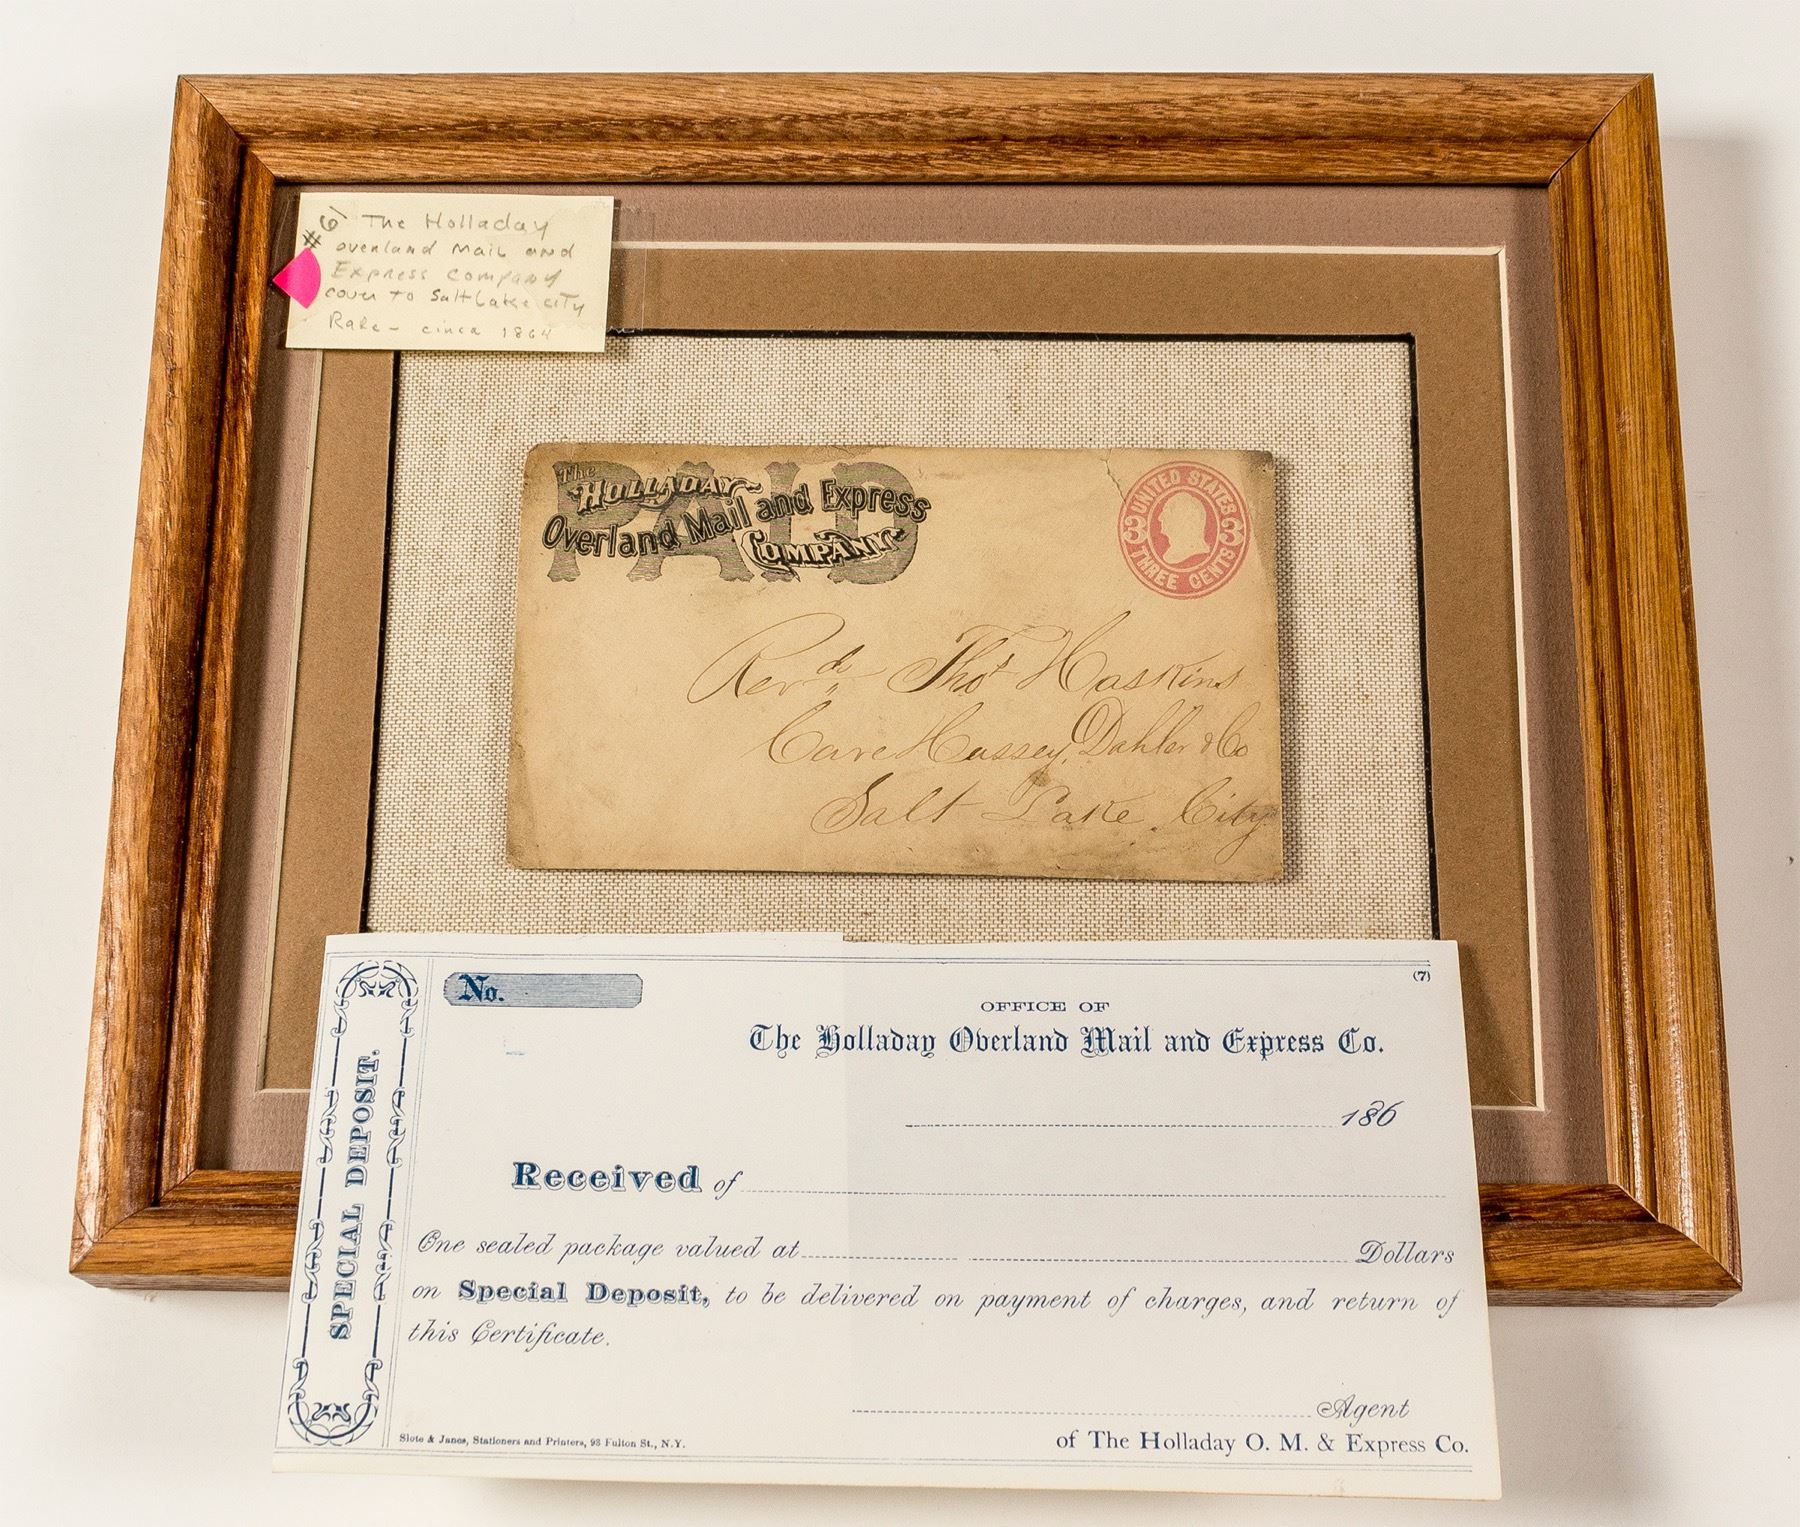 #61 The Holladay
overland Mail and
Express Company
cover to Salt Lake City
Rare - circa 1864
PAID
The
HOLLADAY
Overland Mail and Express
COMPANY
UNITED STATES
3 3
THREE CENTS
Revd Thos Haskins
Care Hussey, Dahler & Co
Salt Lake City
SPECIAL DEPOSIT.
No.
(7)
OFFICE OF
The Holladay Overland Mail and Express Co.
186
Received of
One sealed package valued at Dollars
on Special Deposit, to be delivered on payment of charges, and return of
this Certificate.
Agent
of The Holladay O. M. & Express Co.
Slote & Janes, Stationers and Printers, 93 Fulton St., N.Y.